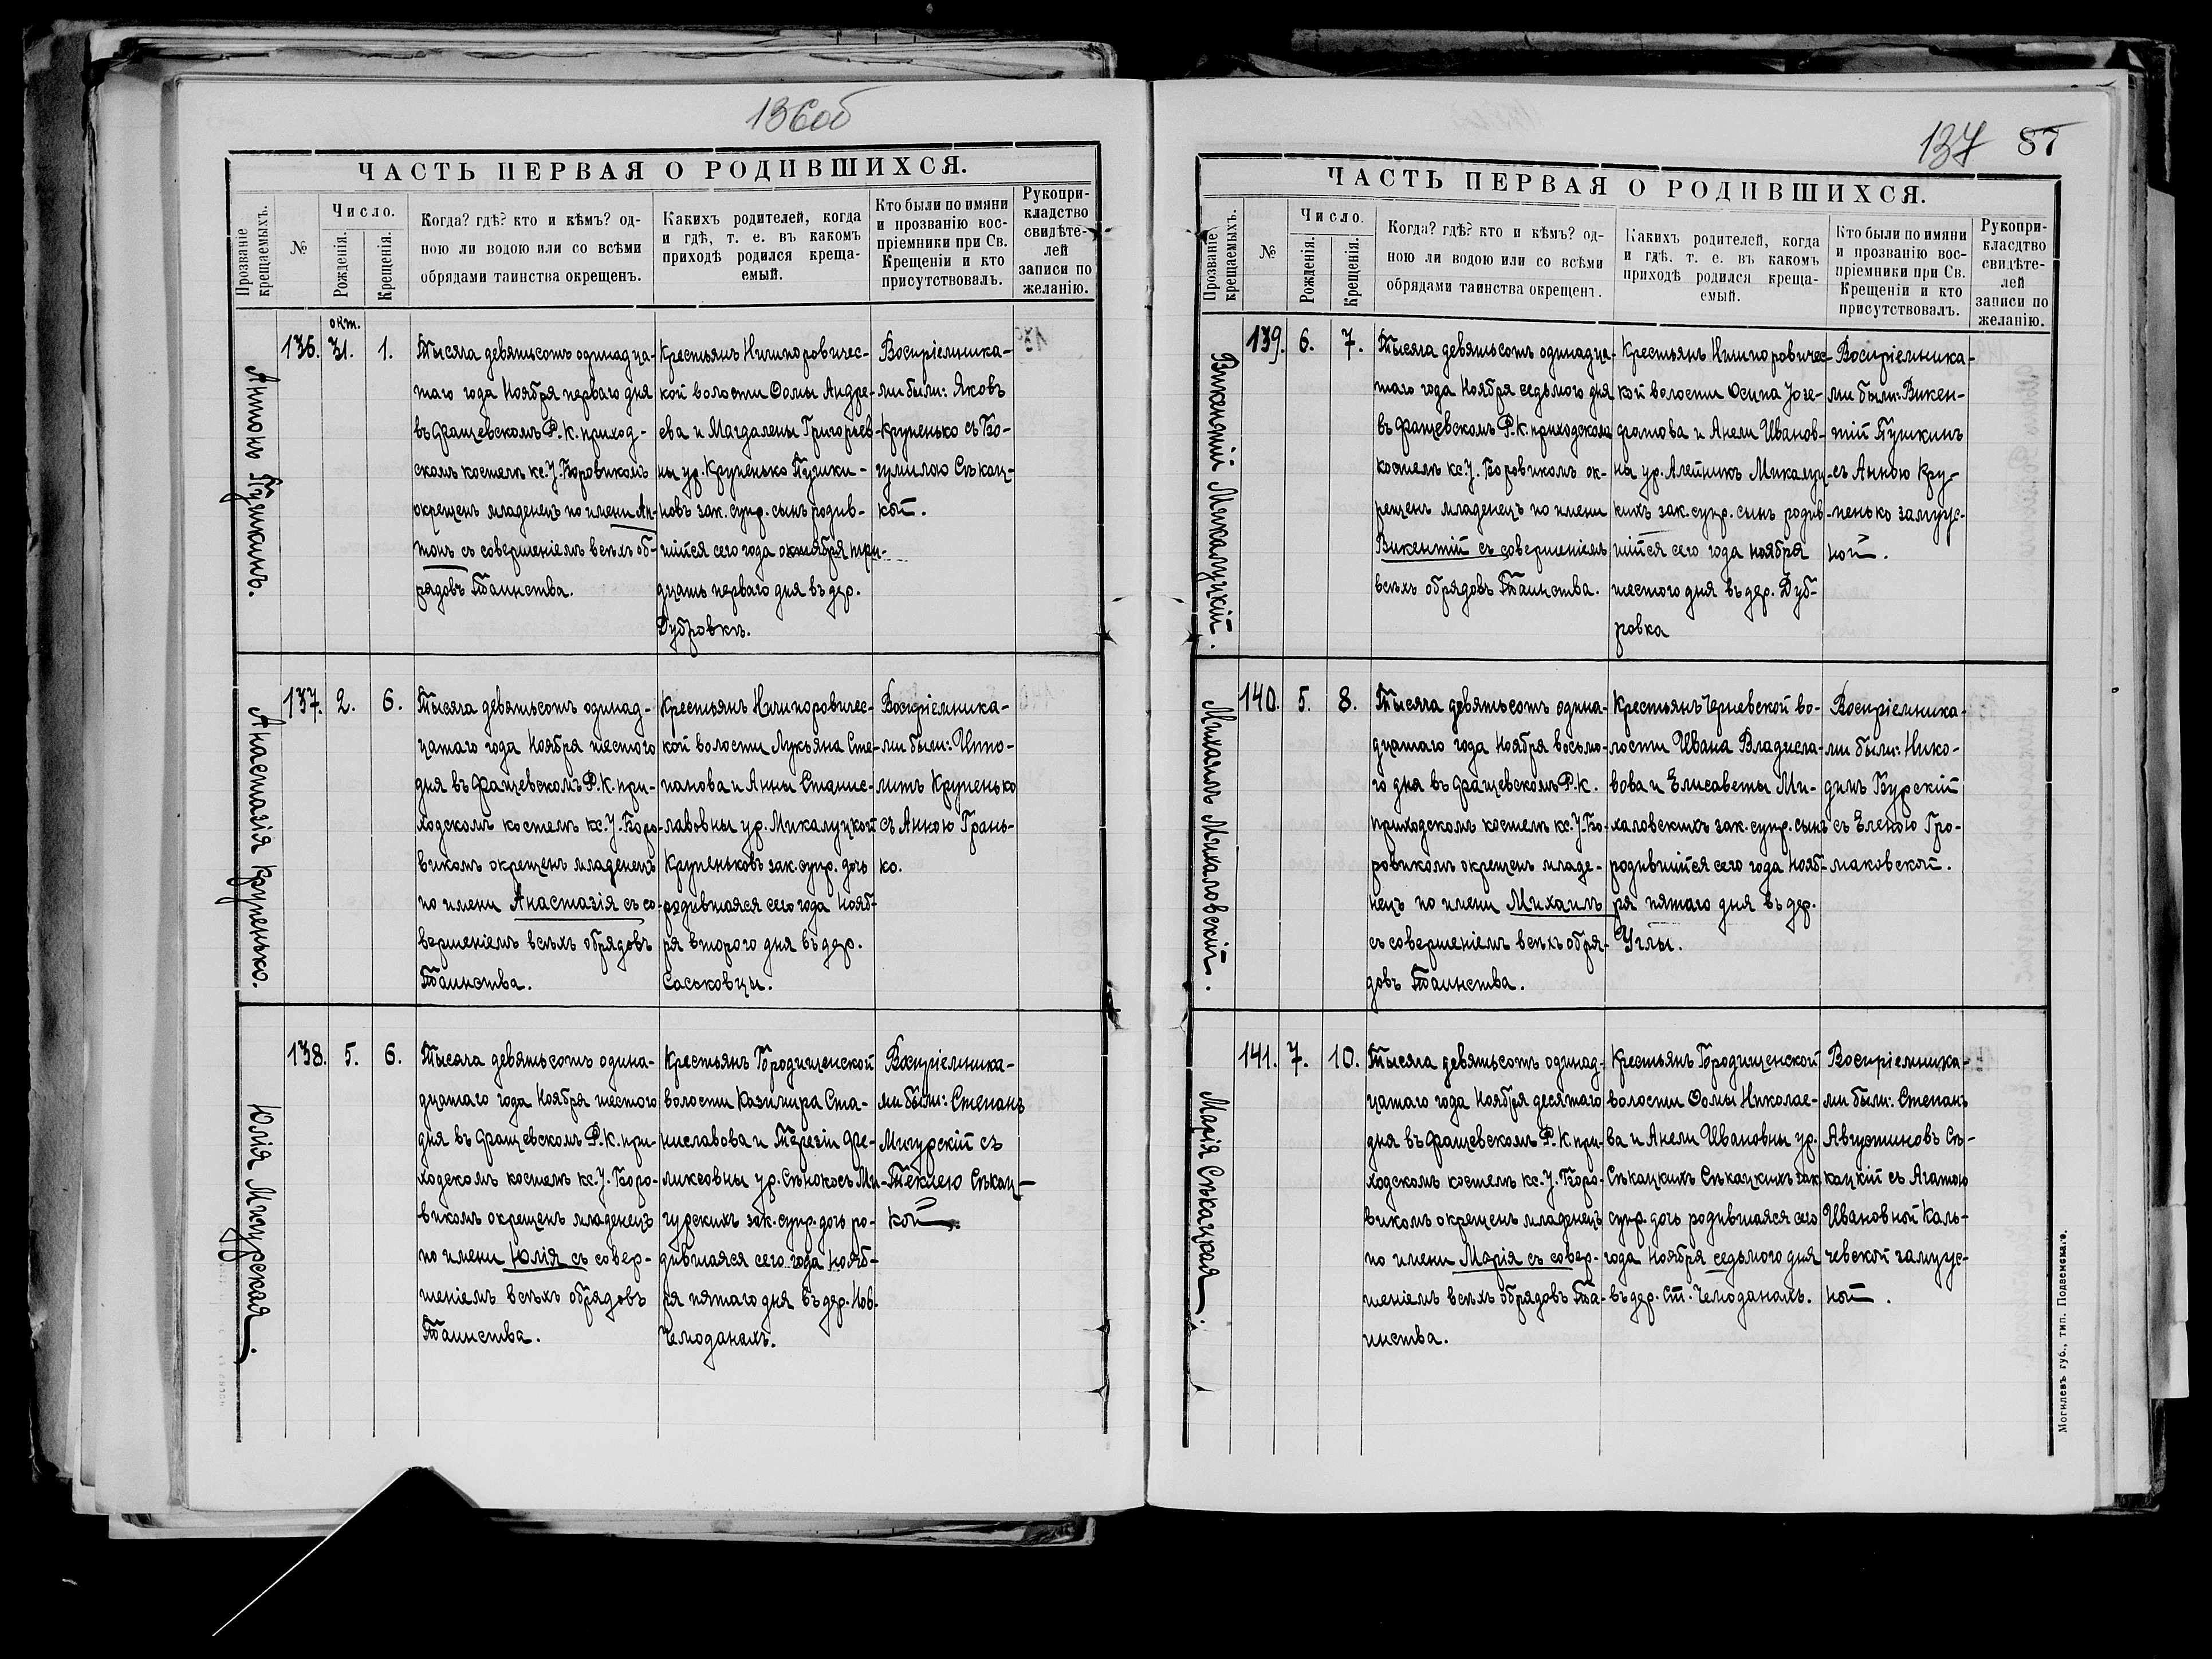 136об
ЧАСТЬ ПЕРВАЯ О РОДИВШИХСЯ.
Прозваніе крещаемыхъ.
№
Число.
Рожденія.
Крещенія.
Когда? гдѣ? кто и кѣмъ? од-
ною ли водою или со всѣми
обрядами таинства окрещенъ.
Какихъ родителей, когда
и гдѣ, т. е. въ какомъ
приходѣ родился креща-
емый.
Кто были по имяни
и прозванію вос-
пріемники при Св.
Крещеніи и кто
присутствовалъ.
Рукопри-
кладство
свидѣте-
лей
записи по
желанію.
Антонъ Пушкинъ.
136.
окт.
31.
1.
Тысяча девятьсотъ одинадца-
таго года Ноября перваго дня
въ Фащевскомъ Р. К. приход-
скомъ костелѣ кс. У. Боровикомъ
окрещенъ младенецъ по имени Ан-
тонъ съ совершеніемъ всѣхъ об-
рядовъ Таинства.
Крестьянъ Ничипоровичес-
кой волости Ѳомы Андре-
ева и Магдалены Григорьев-
ны ур. Крупенько Пушки-
новъ зак. супр. сынъ родив-
шійся сего года октября три-
дцать перваго дня въ дер.
Дубровкѣ.
Воспріемника-
ми были: Яковъ
Крупенько съ Бо-
гумилою Сѣкац-
кой.
Анастазія Крупенько.
137.
2.
6.
Тысяча девятьсотъ одинад-
цатаго года Ноября шестого
дня въ Фащевскомъ Р. К. при-
ходскомъ костелѣ кс. У. Боро-
викомъ окрещенъ младенецъ
по имени Анастазія съ со-
вершеніемъ всѣхъ обрядовъ
Таинства.
Крестьянъ Ничипоровичес-
кой волости Лукьяна Сте-
панова и Анны Станис-
лавовны ур. Микалуцкой
Крупеньковъ зак. супр. дочь
родившаяся сего года Нояб-
ря второго дня въ дер.
Саськовцы.
Воспріемника-
ми были: Ипо-
литъ Крупенько
съ Анною Грань-
ко.
Юлія Мигурская.
138.
5.
6.
Тысяча девятьсотъ одина-
дцатаго года Ноября шестого
дня въ Фащевскомъ Р. К. при-
ходскомъ костелѣ кс. У. Боро-
викомъ окрещенъ младенецъ
по имени Юлія съ совер-
шеніемъ всѣхъ обрядовъ
Таинства.
Крестьянъ Городищенской
волости Казимира Ста-
ниславова и Терезіи Фе-
ликсовны ур. Сѣнокосъ Ми-
гурскихъ зак. супр. дочь ро-
дившаяся сего года Нояб-
ря пятаго дня въ дер. Нов.
Чемоданахъ.
Воспріемника-
ми были: Степанъ
Мигурскій съ
Теклею Сѣкац-
кой.
137 87
ЧАСТЬ ПЕРВАЯ О РОДИВШИХСЯ.
Прозваніе крещаемыхъ.
№
Число.
Рожденія.
Крещенія.
Когда? гдѣ? кто и кѣмъ? од-
ною ли водою или со всѣми
обрядами таинства окрещенъ.
Какихъ родителей, когда
и гдѣ. т. е. въ какомъ
приходѣ родился креща-
емый.
Кто были по имяни
и прозванію вос-
пріемники при Св.
Крещеніи и кто
присутствовалъ.
Рукопри-
класдтво
свидѣте-
лей
записи по
желанію.
Викентій Микалуцкій.
139.
6.
7.
Тысяча девятьсотъ одинадца-
таго года Ноября седьмого дня
въ Фащевскомъ Р. К. приходскомъ
костелѣ кс. У. Боровикомъ ок-
рещенъ младенецъ по имени
Викентій съ совершеніемъ
всѣхъ обрядовъ Таинства.
Крестьянъ Ничипоровичес-
кой волости Осипа Јозе-
фатова и Анели Иванов-
ны ур. Алейникъ Микалуц-
кихъ зак. супр. сынъ родив-
шійся сего года Ноября
шестого дня въ дер. Дуб-
ровка
Воспріемника-
ми были: Викен-
тій Пушкинъ
съ Анною Кру-
пенько замуж-
ной.
Михаилъ Михаловскій.
140.
5.
8.
Тысяча девятьсотъ одина-
дцатаго года Ноября восьмо-
го дня въ Фащевскомъ Р. К.
приходскомъ костелѣ кс. У. Бо-
ровикомъ окрещенъ младе-
нецъ по имени Михаилъ
съ совершеніемъ всѣхъ обря-
довъ Таинства.
Крестьянъ Черневской во-
лости Ивана Владисла-
вова и Елисаветы Ми-
халовскихъ зак. супр. сынъ
родившійся сего года Нояб-
ря пятаго дня въ дер.
Углы.
Воспріемника-
ми были: Нико-
димъ Бурскій
съ Еленою Гро-
маковской.
Марія Сѣкацкая.
141.
7.
10.
Тысяча девятьсотъ одинад-
цатаго года Ноября десятаго
дня въ Фащевскомъ Р. К. при-
ходскомъ костелѣ кс. У. Боро-
викомъ окрещенъ младенецъ
по имени Марія съ совер-
шеніемъ всѣхъ обрядовъ Та-
инства.
Крестьянъ Городищенской
волости Ѳомы Николае-
ва и Анели Ивановны ур.
Сѣкацкихъ Сѣкацкихъ зак.
супр. дочь родившаяся сего
года Ноября седьмого дня
въ дер. Ст. Чемоданахъ.
Воспріемника-
ми были: Степанъ
Августиновъ Сѣ-
кацкій съ Агатою
Ивановной Каль-
чевской замуж-
ной.
Могилевъ губ., тип. Подземскаго.